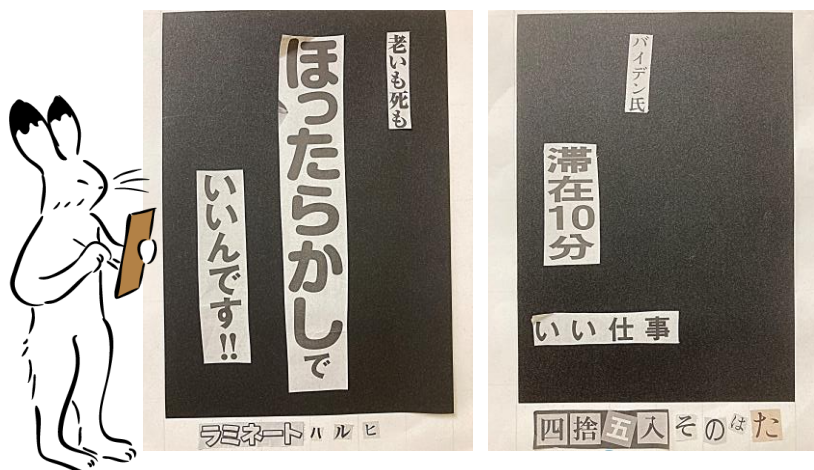 老いも死も
ほったらかしで
いいんです!!
ラミネートハルヒ
バイデン氏
滞在10分
いい仕事
四捨五入そのはた